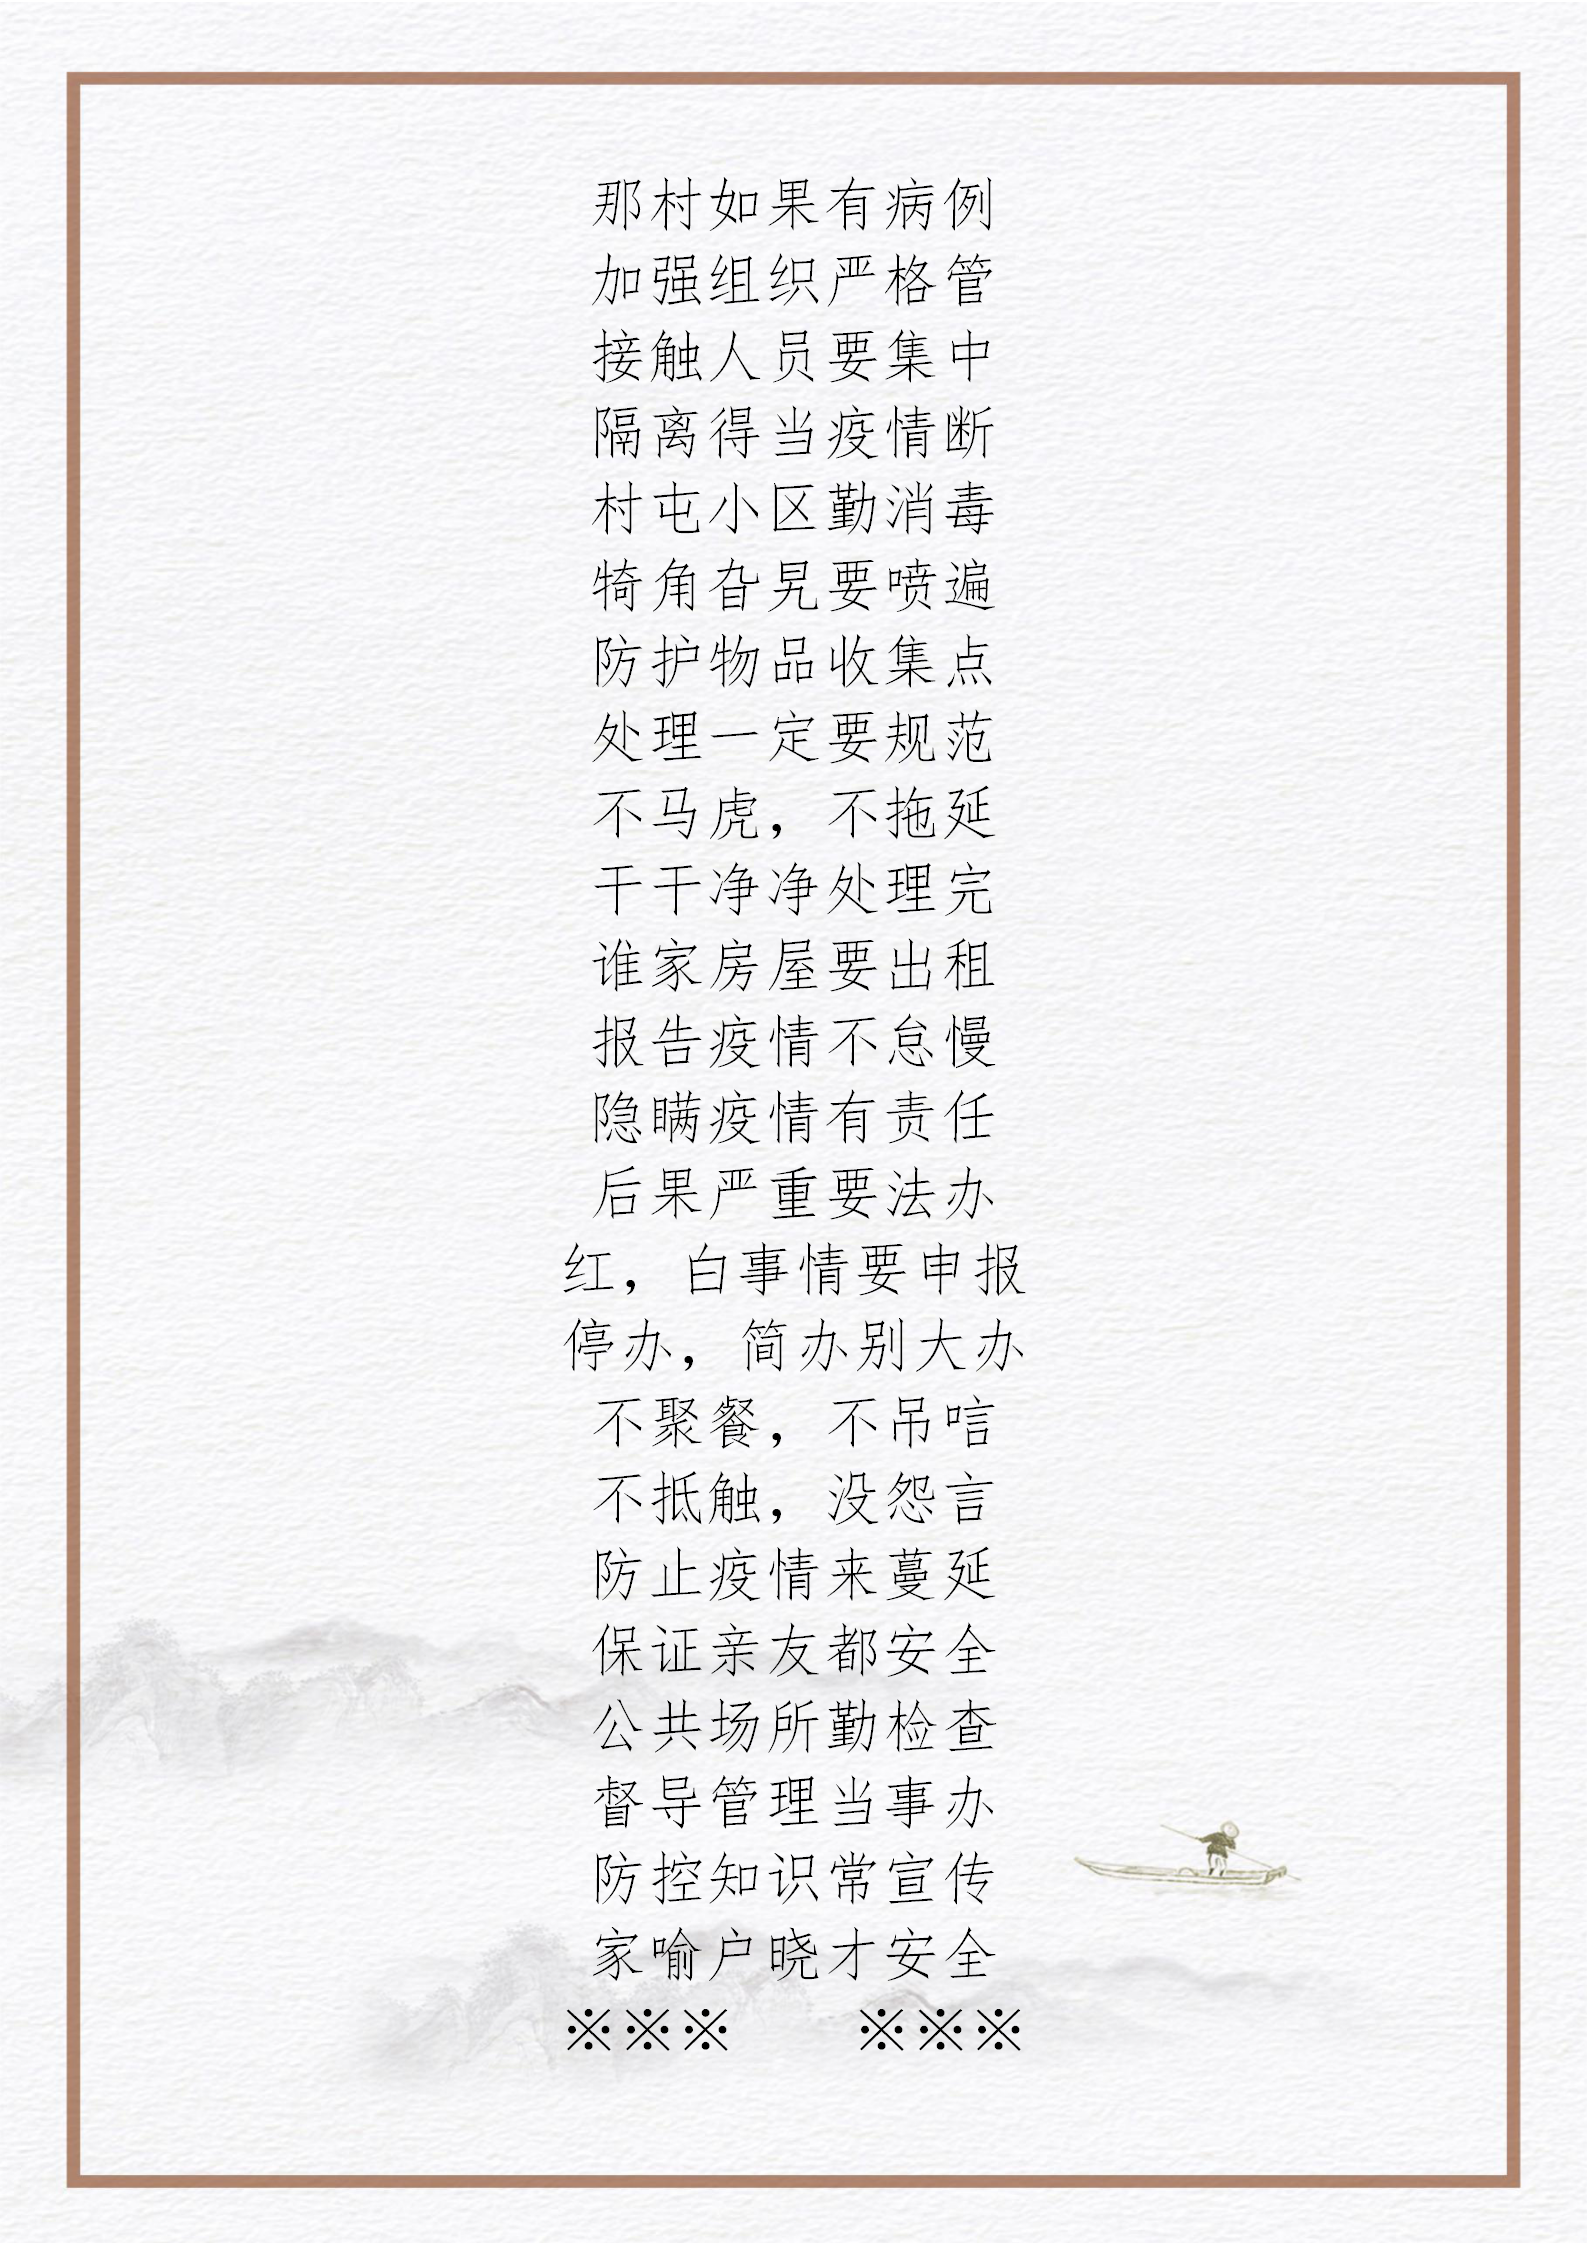 那村如果有病例
加强组织严格管
接触人员要集中
隔离得当疫情断
村屯小区勤消毒
犄角旮旯要喷遍
防护物品收集点
处理一定要规范
不马虎，不拖延
干干净净处理完
谁家房屋要出租
报告疫情不怠慢
隐瞒疫情有责任
后果严重要法办
红，白事情要申报
停办，简办别大办
不聚餐，不吊唁
不抵触，没怨言
防止疫情来蔓延
保证亲友都安全
公共场所勤检查
督导管理当事办
防控知识常宣传
家喻户晓才安全
※※※　　※※※